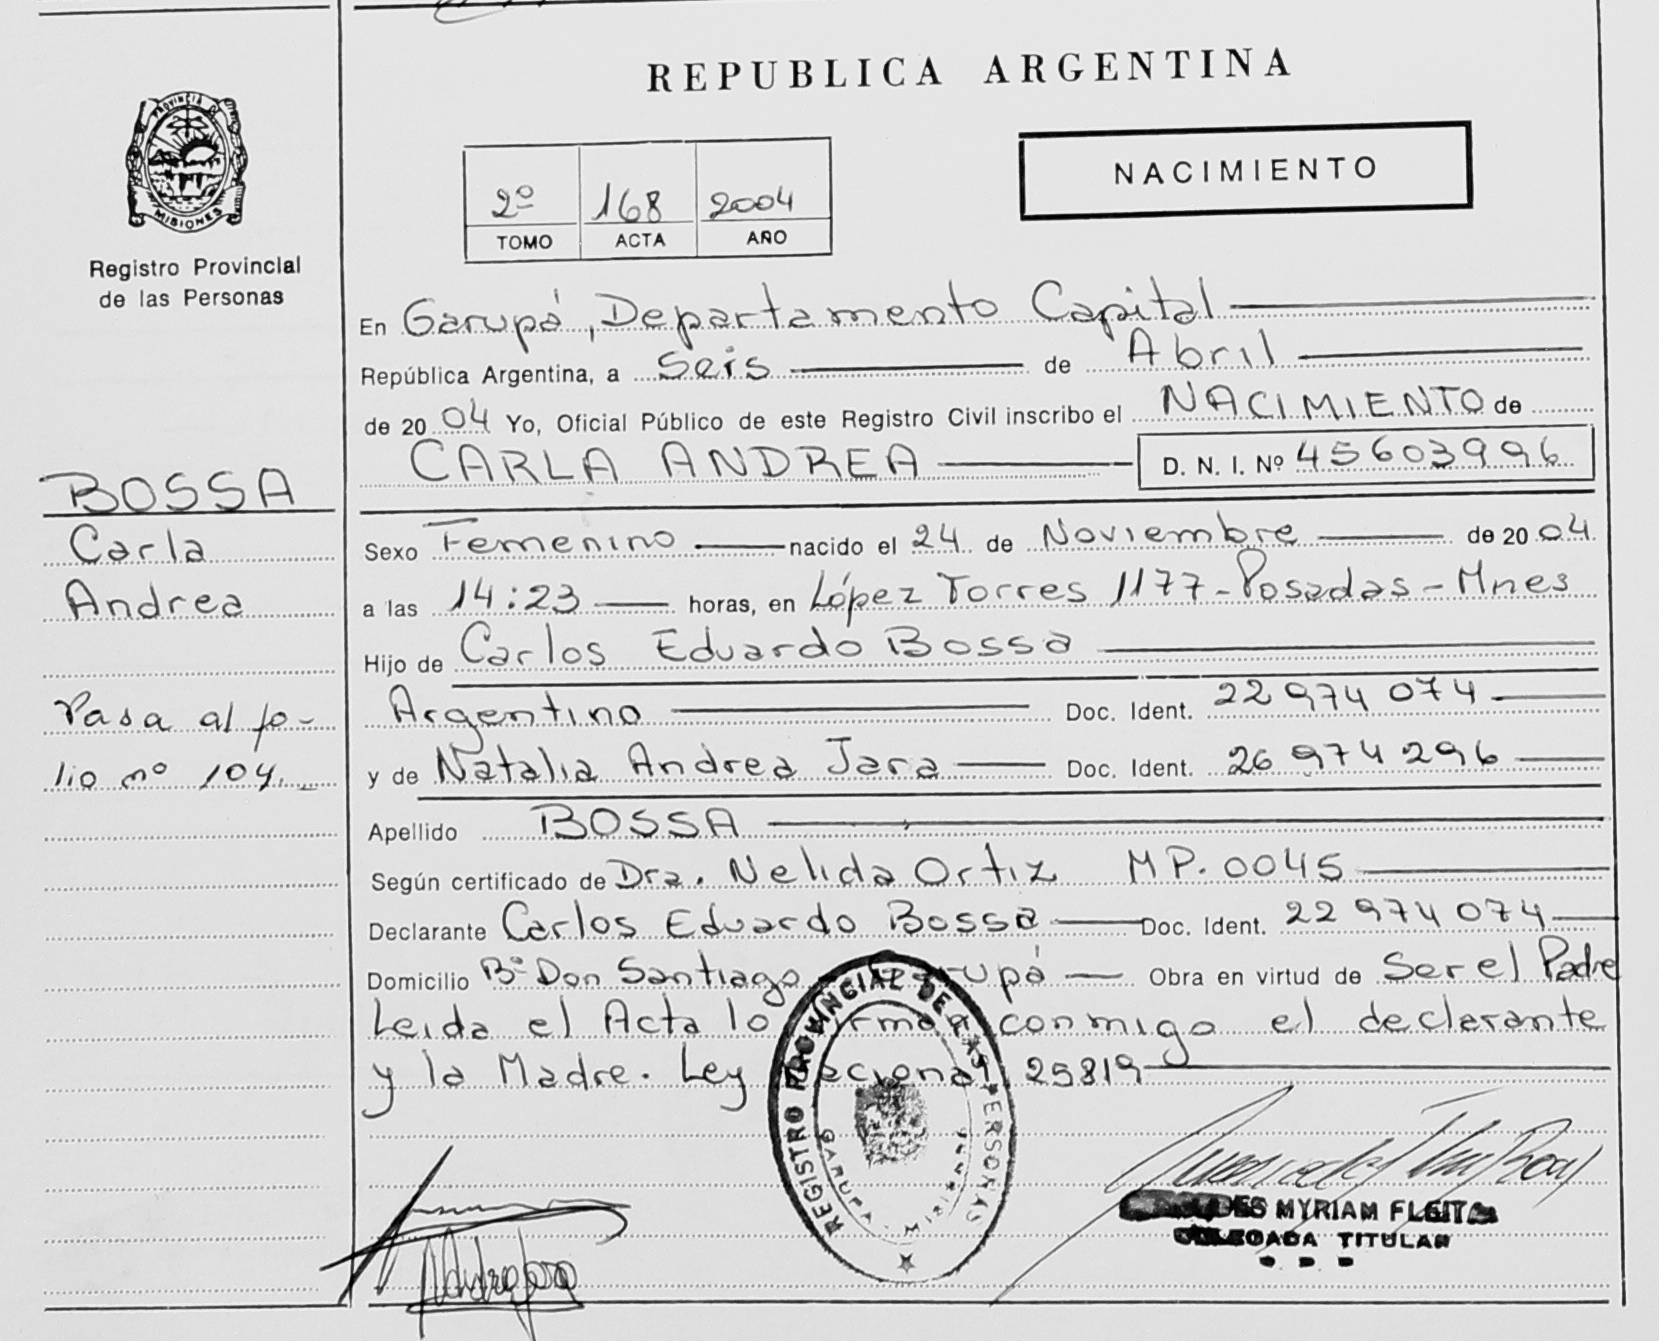 REPUBLICA ARGENTINA
PROVINCIA DE
MISIONES
Registro Provincial
de las Personas
NACIMIENTO
2º 168 2004
TOMO ACTA AÑO
En Garupá, Departamento Capital
República Argentina, a Seis de Abril
de 2004 Yo, Oficial Público de este Registro Civil inscribo el NACIMIENTO de
CARLA ANDREA D. N. I. Nº 45603996
BOSSA
Carla
Andrea
Pasa al fo-
lio nº 104.
Sexo Femenino nacido el 24 de Noviembre de 2004.
a las 14:23 horas, en López Torres 1177-Posadas-Mnes
Hijo de Carlos Eduardo Bossa
Argentino Doc. Ident. 22 974 074
y de Natalia Andrea Jara Doc. Ident. 26 974 296
Apellido BOSSA
Según certificado de Dra. Nelida Ortiz MP. 0045
Declarante Carlos Eduardo Bossa Doc. Ident. 22 974 074
Domicilio Bº Don Santiago Garupá Obra en virtud de Ser el Padre
Leida el Acta lo firman conmigo el declarante
y la Madre. Ley Nacional 25819
REGISTRO PROVINCIAL DE LAS PERSONAS
GARUPA - MISIONES
MYRIAM FLEITA
DELEGADA TITULAR